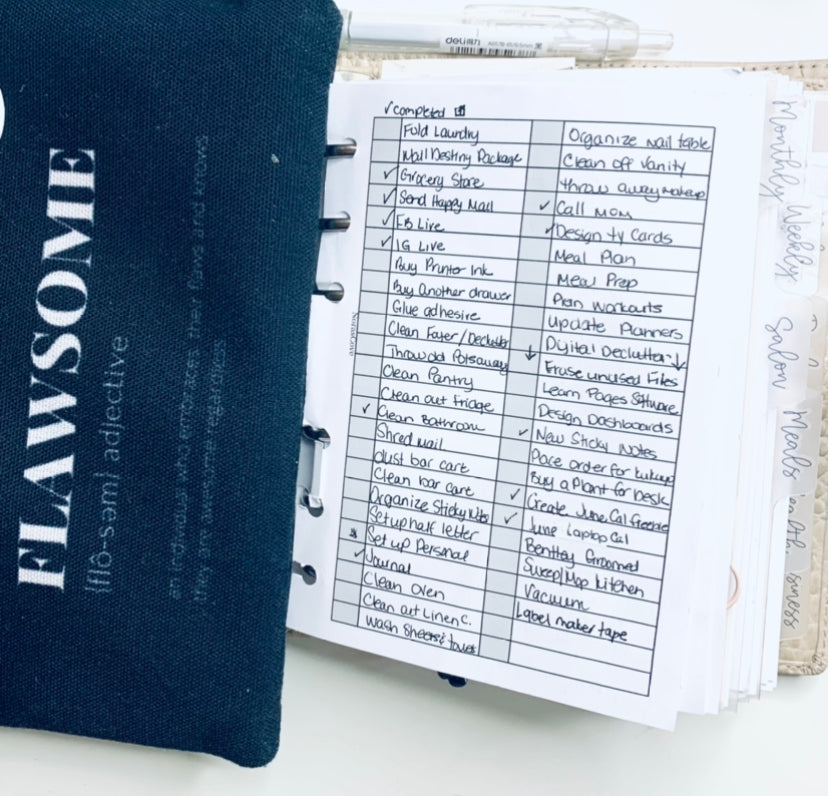 FLAWSOME
[flô-səm] adjective
an individual who embraces their flaws and knows
they are awesome regardless
deli
✓completed
Fold Laundry
Mail Destiny Package
✓ Grocery Store
✓ Send Happy Mail
✓ FB Live
✓ IG Live
Buy Printer Ink
Buy Another drawer
Glue adhesive
Clean Foyer/Declutter
Throw old Pots away
Clean Pantry
Clean out fridge
✓ Clean Bathroom
Shred Mail
dust bar cart
Clean bar cart
Organize Sticky Nts
Setup half letter
Set up Personal
✓ Journal
Clean Oven
Clean out Linen C.
Wash Sheets & towels
Organize nail table
Clean off Vanity
throw away Makeup
✓ Call MOM
✓ Design ty Cards
Meal Plan
Meal Prep
Plan Workouts
update Planners
↓ Digital Declutter ↓
Erase unused Files
Learn Pages Software
Design Dashboards
✓ New Sticky Notes
Place order for
Buy a Plant for Desk
✓ Create June Cal Freebie
✓ June Laptop Cal
Bentley Groomed
Sweep/Mop kitchen
Vacuum
Label maker tape
Monthly
Weekly
Salon
Meals